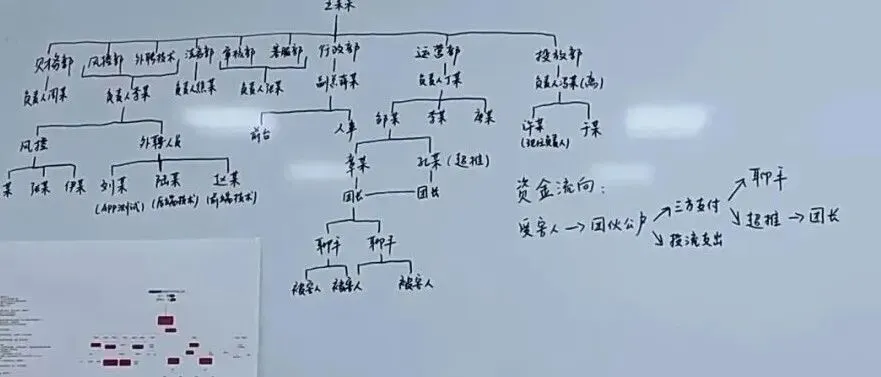 王某某
财务部 风控部 外聘技术 法务部 审核部 客服部 行政部 运营部 投放部
负责人周某 负责人李某 负责人熊某 负责人张某 副总薛某 负责人丁某 负责人冯某(离)
前台 人事 邹某 李某 唐某 许某 于某
(现任负责人)
风控 外聘人员 章某 孔某(超推)
某 张某 伊某 刘某 陆某 赵某
(App测试) (后端技术) (前端技术)
团长 团长
聊手 聊手
被害人 被害人 被害人
资金流向:
受害人→团伙公户 三方支付 聊手
投流支出 超推→团长